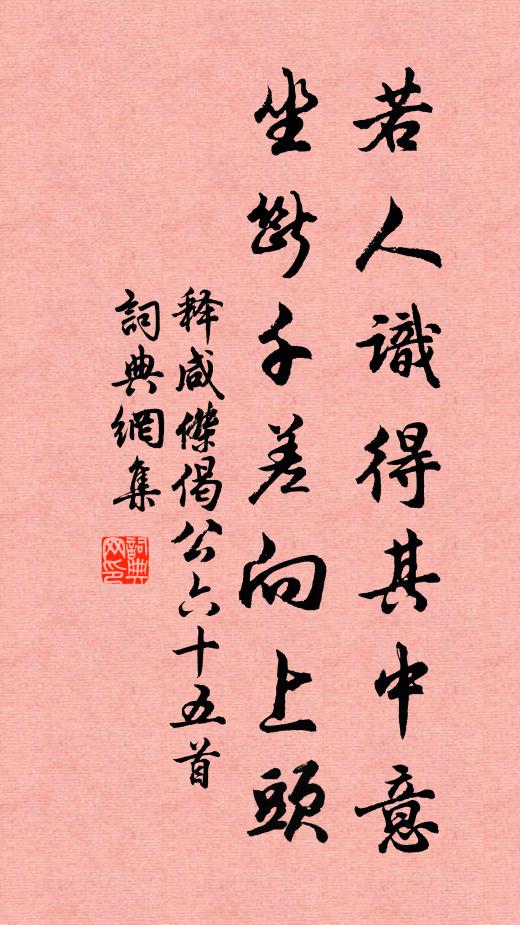 若人識得其中意
坐斷千差向上頭
释咸傑偈公六十五首
詞典網集
詞典網印